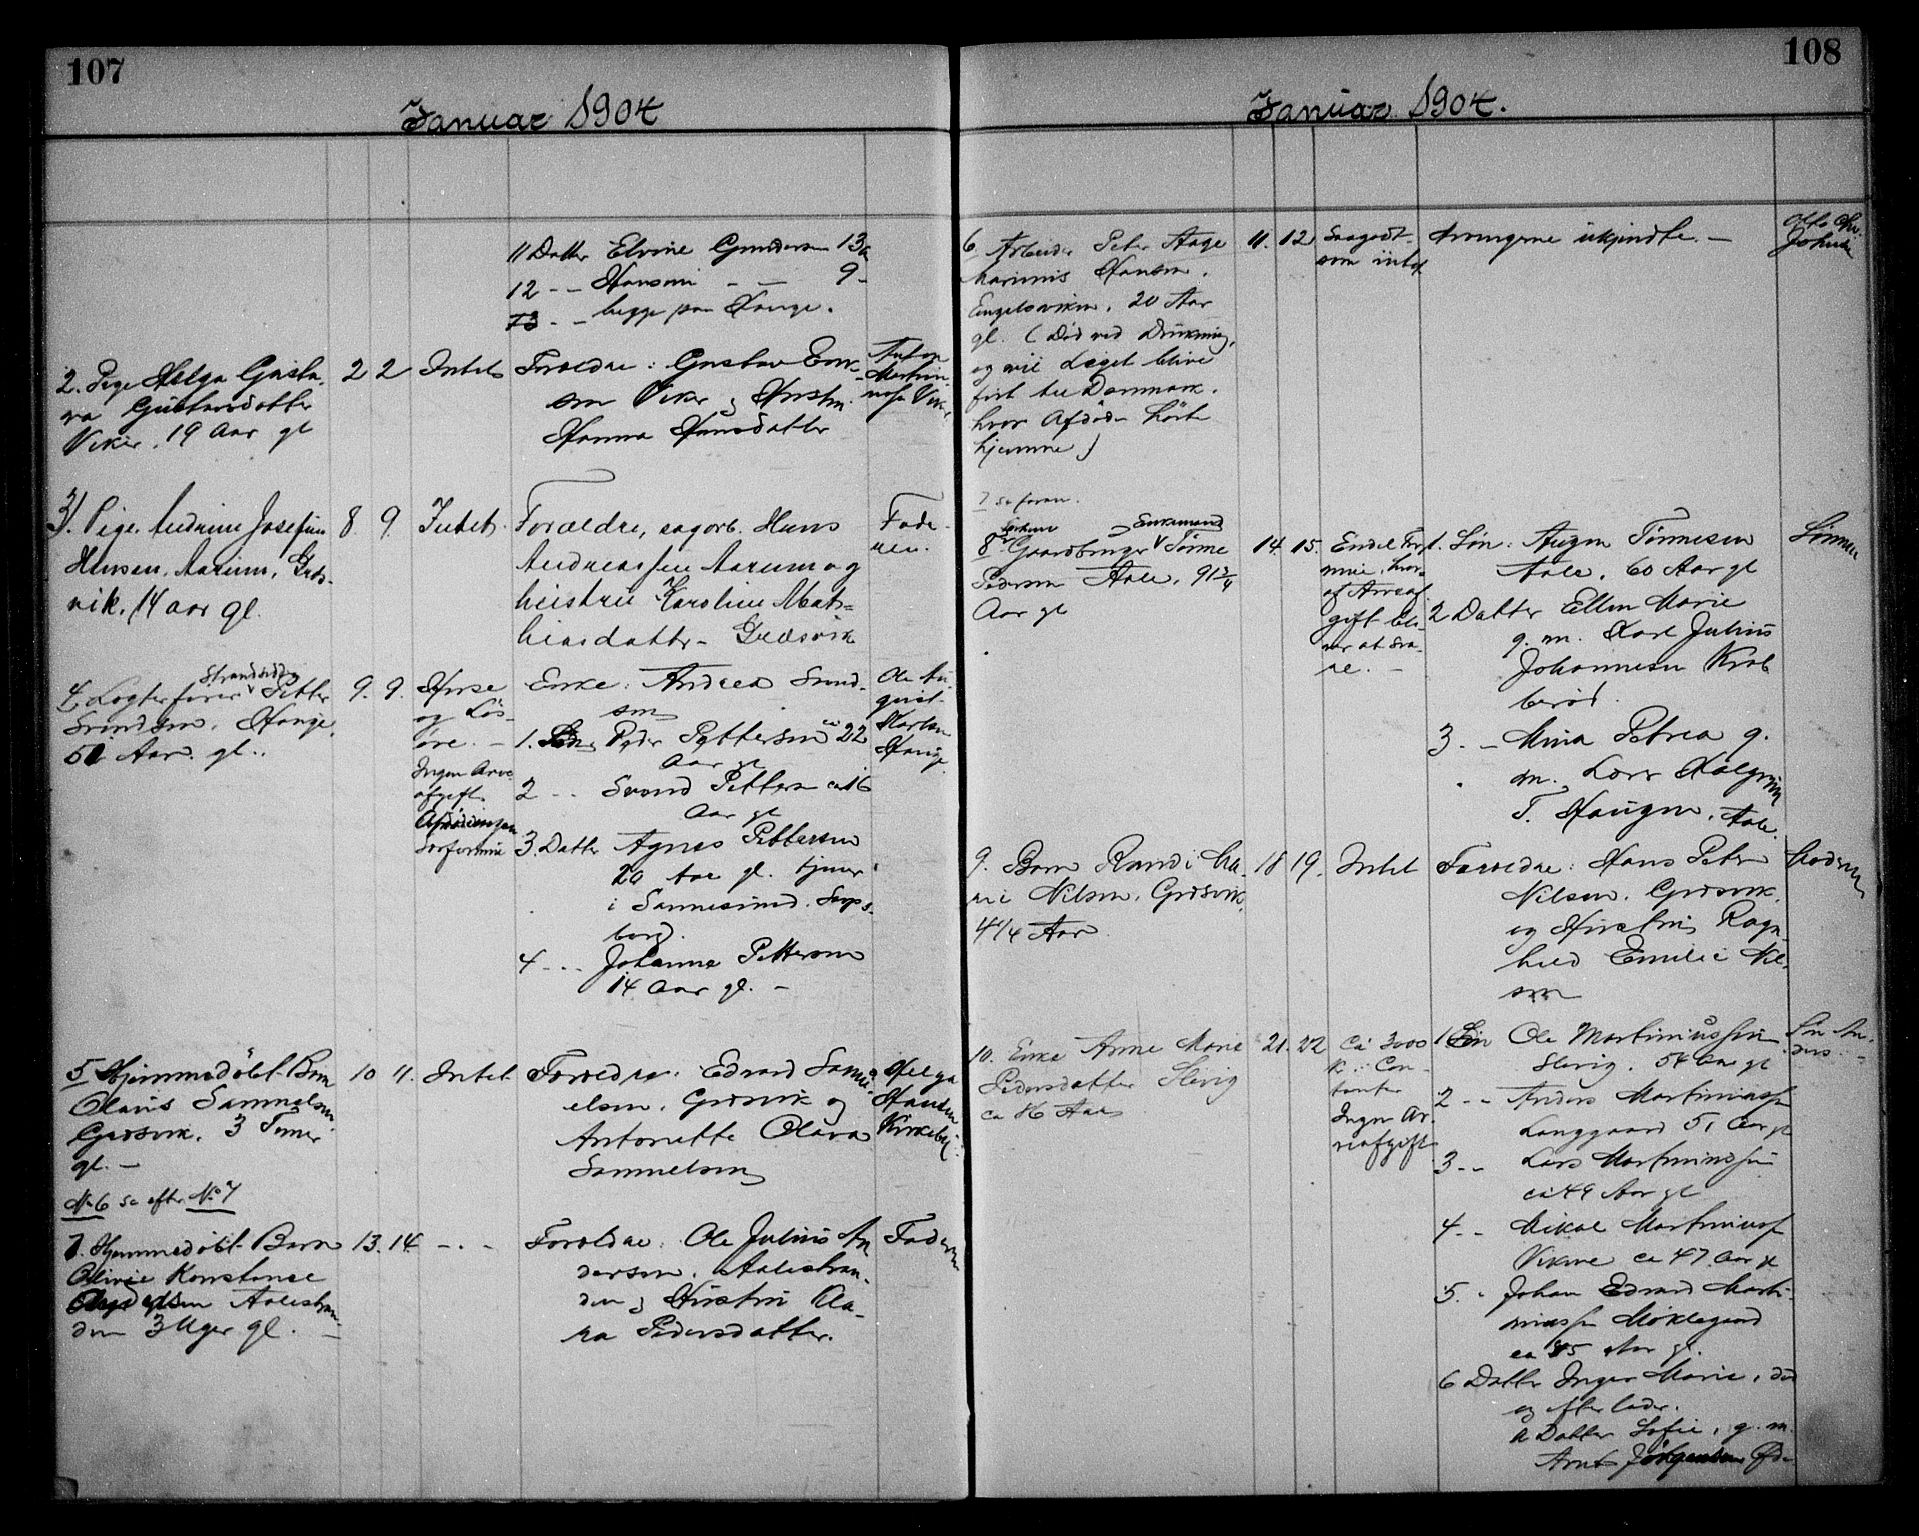 107
Januar 1904
11 Datter Elvine Gundersen 13 a
12 - - Hansine - - 9 -
13 - - begge paa Hauge.
2. Pige Helga Gusta-
va Gustavsdatter
Viker. 19 Aar gl
2 2
Intet
Forældre: Gustav
sen Viker og Hustru
Hanna Hansdatter
Anton
Viker
3). Pige Andrine Josefine
Hansen, Aarum, Gres-
vik, 14 aar gl.
8 9.
Intet.
Forældre, sagarb. Hans
Andreassen Aarum og
heistrie Karoline Mat-
hiasdatter - Gresvik
Fade-
ren.
Strandsidder
4. Logterfører Petter
Svendsen, Hauge,
51 Aar. gl..
9. 9.
Huse
og Løs-
øre. -
Ingen Arve-
afgift.
Enke: Andrea Svend-
sen
1. Peder Pettersen ca 22
Aar gl
2 - - Svend Pettersen ca 16
Aar gl
3. Datter Agnes Pettersen
20 Aar gl. tjener
i Sannesund. Sarps-
borg.
4 - - - Johanne Pettersen
14 Aar gl. -
Ole Au-
gust
Hauge
5 Hjemmedøbt Barn
Olaus Samuelsen
Gresvik. 3 Timer
gl. -
No 6 se efter No 7
10 11.
Intet.
Forældre. Edvard Samu-
elsen, Gresvik og
Antonette Olava
Samuelsen
Helga
Hansen
Kirkeby
7. Hjemmedøbt Barn
Olivie Konstanse
Andersen Aalestran-
den 3 Uger gl. -
13. 14
- . -
Forældre: Ole Julius An
dersen. Aalestran-
den og Hustru Cla-
ra Pedersdatter.
Faderen
108
Januar 1904.
6. Arbeider Peter Aage
Marinus Hansen.
Engelsviken, 20 Aar
gl. (Død ved Drukning,
og vil Liget blive
ført til Danmark.
hvor Afdøde hørte
hjemme)
11. 12
Saagodt
som intet
Arvingerne ukjendte. -
7 se foran.
8 Gaardbruger Enkemand Tønne
Pedersen Aale, 91 3/4
Aar gl
14. 15.
Endel For-
mue, hvor-
af Arveaf-
gift bli-
ver at sva-
re. -
1. Søn: Tønnesen
Aale, 60 Aar gl
2 Datter Ellen Marie
g. m. Karl Julius
Johannesen Krab
berød.
3. - Mina Petrea g.
m. Lars Halgrim
T. Haugen, Aale.
Sønnen
9. Barn Randi Ma-
rie Nilsen, Gresvik,
4 1/4 Aar
18 19.
Intet
Forældre: Hans Peter
Nilsen. Gresvik,
og Hustru Ragn-
hild Emilie Nil-
sen
Moderen
10. Enke Anne Marie
Pedersdatter Slevig
ca 86 Aar
21. 22
Ca 3000
Kr. Con-
tanter
Ingen Ar-
veafgift
1 Søn Ole Martiniussen
Slevig. 54 Aar gl
2 - - Anders Martiniussen
Langgaard 51 Aar gl
3 - - Lars Martiniussen
ca 49 Aar gl
4 - - Mikal Martiniussen
Vikene ca 47 Aar gl
5. - Johan Edvard Marti-
niussen Møklegaard
ca 45 Aar gl.
6 Datter Inger Marie, død
og efterlader.
a Datter Sofie, g. m.
Arnt Jørgensen
Søn An-
ders. -